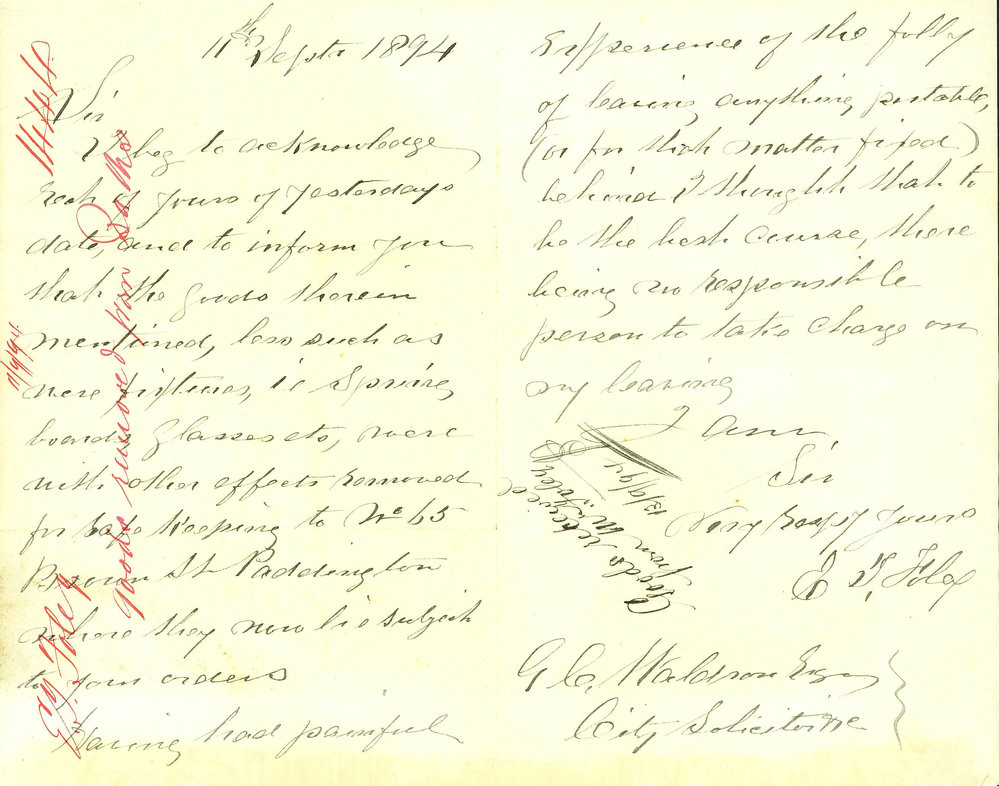 11th Septr 1894
Sir
I beg to acknowledge
rect of yours of yesterdays
date, and to inform you
that the goods therein
mentioned, less such as
were fixtures, ie Spring
boards Glasses etc, were
with other effects removed
for safe keeping to No 65
Brown St Paddington
where they now lie subject
to your orders
Having had painful
Experience of the folly
of leaving anything portable,
(or for that matter fixed)
behind I thought that to
be the best course, there
being no responsible
person to take charge on
my leaving
I am
Sir
Very Respy yours
E T, Foley
G C. Waldron Esq
City Solicitor
Goods received
from Mr Foley
13/9/94
E.T. Foley
goods removed from Baths
11/9/94